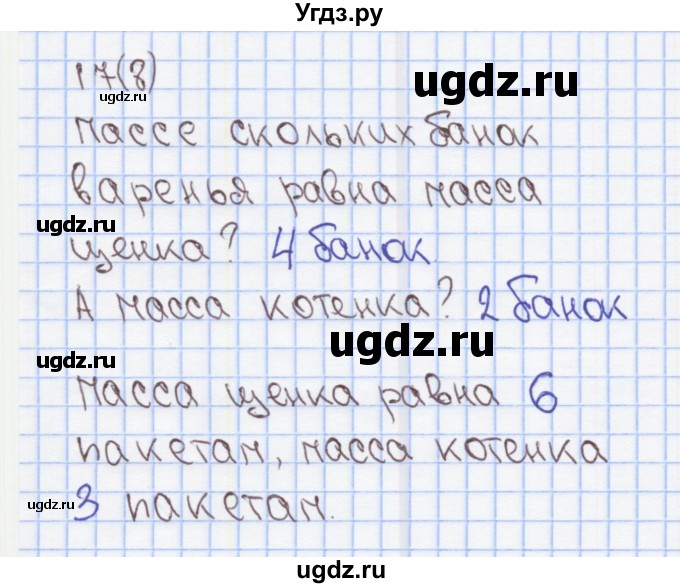 Угдз.ру
17(8)
ugdz.ru
ugdz.ru
Массе скольких банок
варенья равна масса
ugdz.ru
щенка? 4 банок
А масса котенка? 2 банок
ugdz.ru
ugdz.ru
Масса щенка равна 6
пакетам, масса котенка
ugdz.ru
3 пакетам.
ugdz.ru